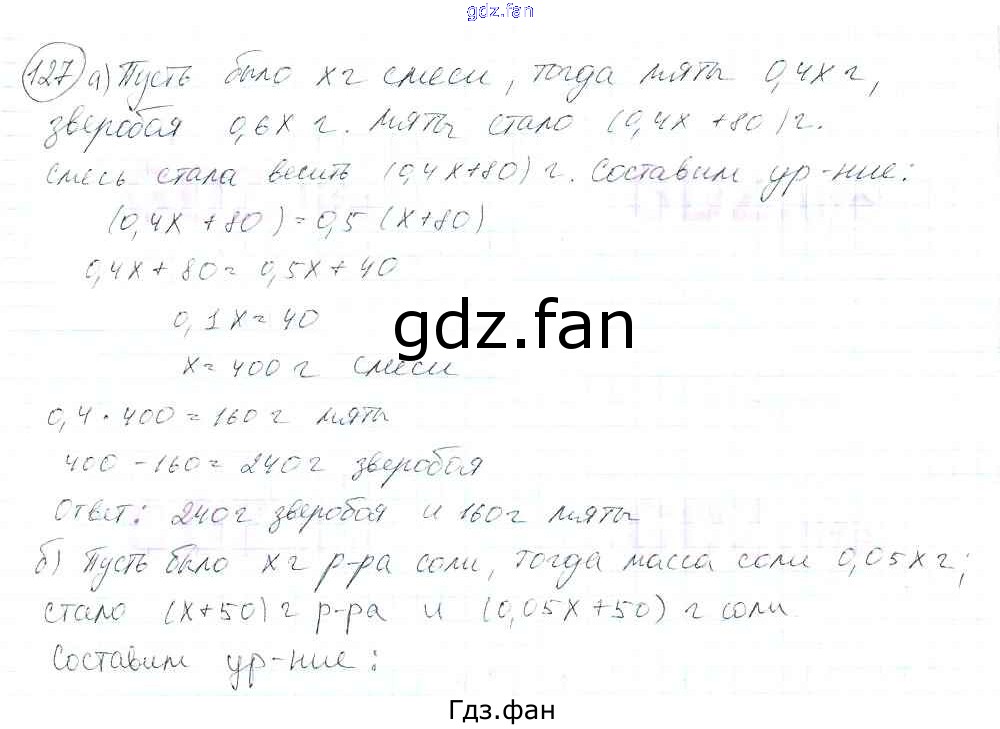 gdz.fan
127 а) Пусть было х г смеси, тогда мяты 0,4х г,
зверобоя 0,6х г. Мяты стало (0,4х +80) г.
Смесь стала весить (0,4х+80) г. Составим ур-ние:
(0,4х +80) = 0,5 (х+80)
0,4х + 80 = 0,5х + 40
0,1х = 40
gdz.fan
х = 400 г смеси
0,4 • 400 = 160 г мяты
400 - 160 = 240 г зверобоя
Ответ: 240 г зверобоя и 160 г мяты
б) Пусть было х г р-ра соли, тогда масса соли 0,05х г;
стало (х+50) г р-ра и (0,05х +50) г соли
Составим ур-ние:
Гдз.фан